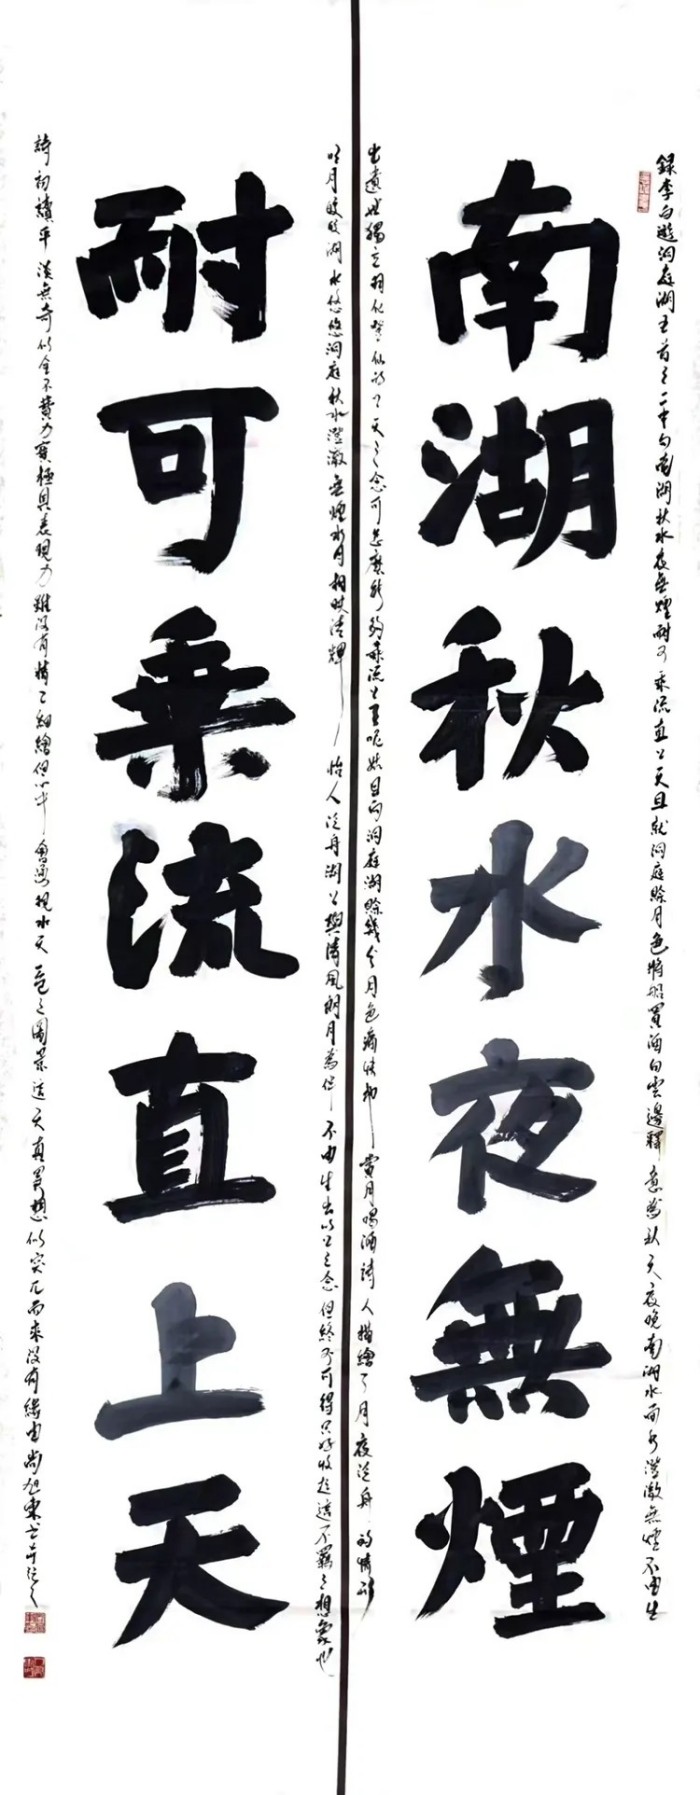 錄李白遊洞庭湖五首之二中句南湖秋水夜無煙耐可乘流直上天且就洞庭賒月色將船買酒白雲邊釋意為秋天夜晚南湖水面水澄澈無煙不由生
南湖秋水夜無煙
出遺世獨立羽化登仙的上天之念可怎麼能夠乘流上天呢姑且向洞庭湖賒幾分月色痛快地賞月喝酒詩人描繪了月夜泛舟的情形
明月皎皎湖水悠悠洞庭秋水澄澈無煙水月相映清輝怡人泛舟湖上與清風朗月為伴不由生出上之念但終不可得只好收起這不羈之想象也
耐可乘流直上天
詩初讀平淡無奇似全不費力實極具表現力雖沒有精工細繪但心中會湧現水天一色之圖景這天真異想似突兀而來沒有緣由尚旭東